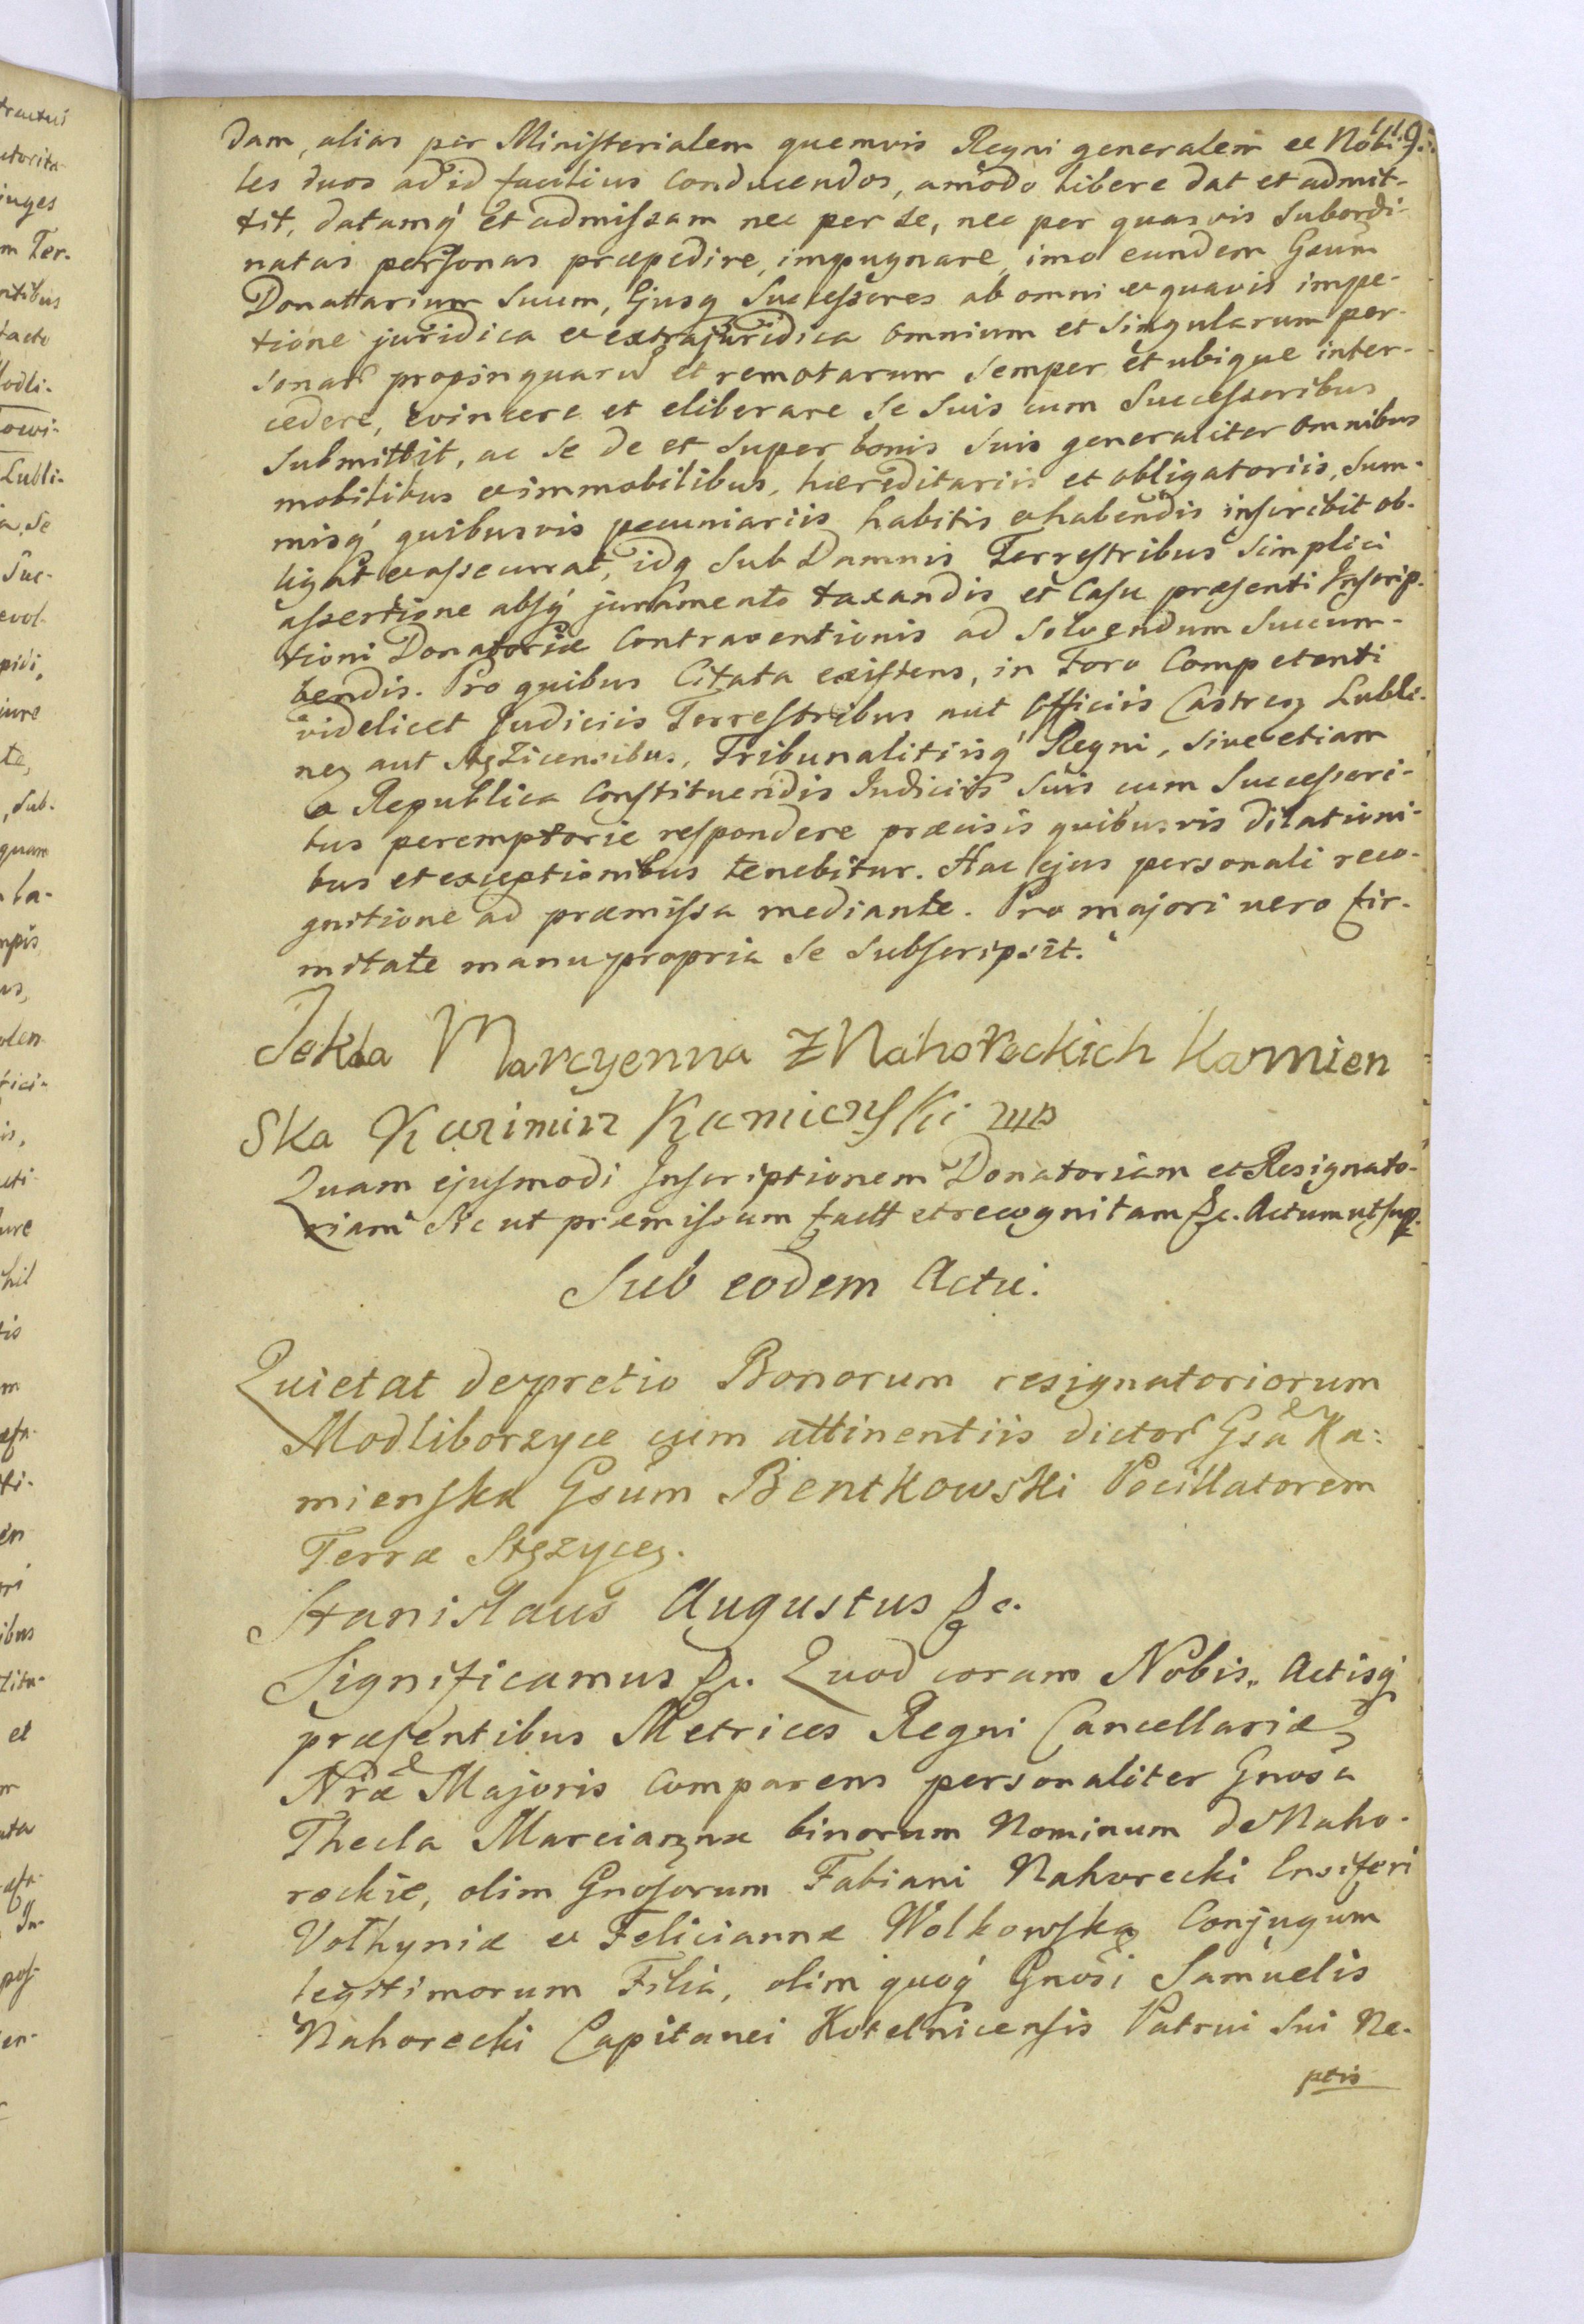 dam, alias per Ministerialem quemvis Regni generalem et Nobi-
les duos ad id facilius conducendos, amodo libere dat et admit-
tit, datamq́ et admissam nec per se, nec per quasvis subordi-
natas personas præpedire, impugnare, imo eundem Gsum
Donattarium Suum, Ejusq Successores ab omni et quavis impe-
tione juridica et extrajuridica omnium et singularum per-
sonar propinquaru et remotarum semper et ubique inter-
cedere, evincere et eliberare se suis cum Successoribus
submittit, ac se de et super bonis suis generaliter omnibus
mobilibus et immobilibus, hæreditariis et obligatoriis, sum-
misq́ quibusvis pecuniariis habitis et habendis inscribit ob-
ligat et assecurat, idq sub Damnis Terrestribus simplici
assertione absq́ juramento taxandis et Casu præsenti Inscrip-
tioni Donatoriæ Contraventionis ad solvendum succum-
bendis. Pro quibus Citata existens, in Foro Competenti
videlicet Judiciis Terrestribus aut Officiis Castren Lubli-
nen aut Stęzicensibus, Tribunalitiisq́ Regni, sive etiam
a Republica Constituendis Judiciis suis cum Successori-
bus peremptorie respondere præcisis quibusvis dilationi-
bus et exceptionibus tenebitur. Hac ejus personali reco-
gnitione ad præmissa mediante. Pro majori vero fir-
mitate manu propria se subscripsit.
Tekla Marcyenna z Nahoreckich Kamien
ska Kazimirz Kamienski mp
Quam ejusmodi Inscriptionem Donatoriam et Resignato-
riam sic ut præmissum factt et recognitam &c. Actum ut sup.
Sub eodem Actu.
Quietat de pretio Bonorum resignatoriorum
Modliborzyce cum attinentiis dictor Gsa Ka-
mienska Gsum Bentkowski Pocillatorem
Terræ Stęzycen.
Stanislaus Augustus &c.
Significamus &c. Quod coram Nobis, Actisq́
præsentibus Metrices Regni Cancellariæ
Nræ Majoris comparens personaliter Gnosa
Thecla Marcianna binorum Nominum de Naho-
reckie, olim Gnosorum Fabiani Nahorecki Ensiferi
Volhyniæ et Feliciannæ Wolkowska Conjugum
legitimorum Filia, olim quoq́ Gnosi Samuelis
Nahorecki Capitanei Kotelnicensis Patrui sui Ne-
ptis